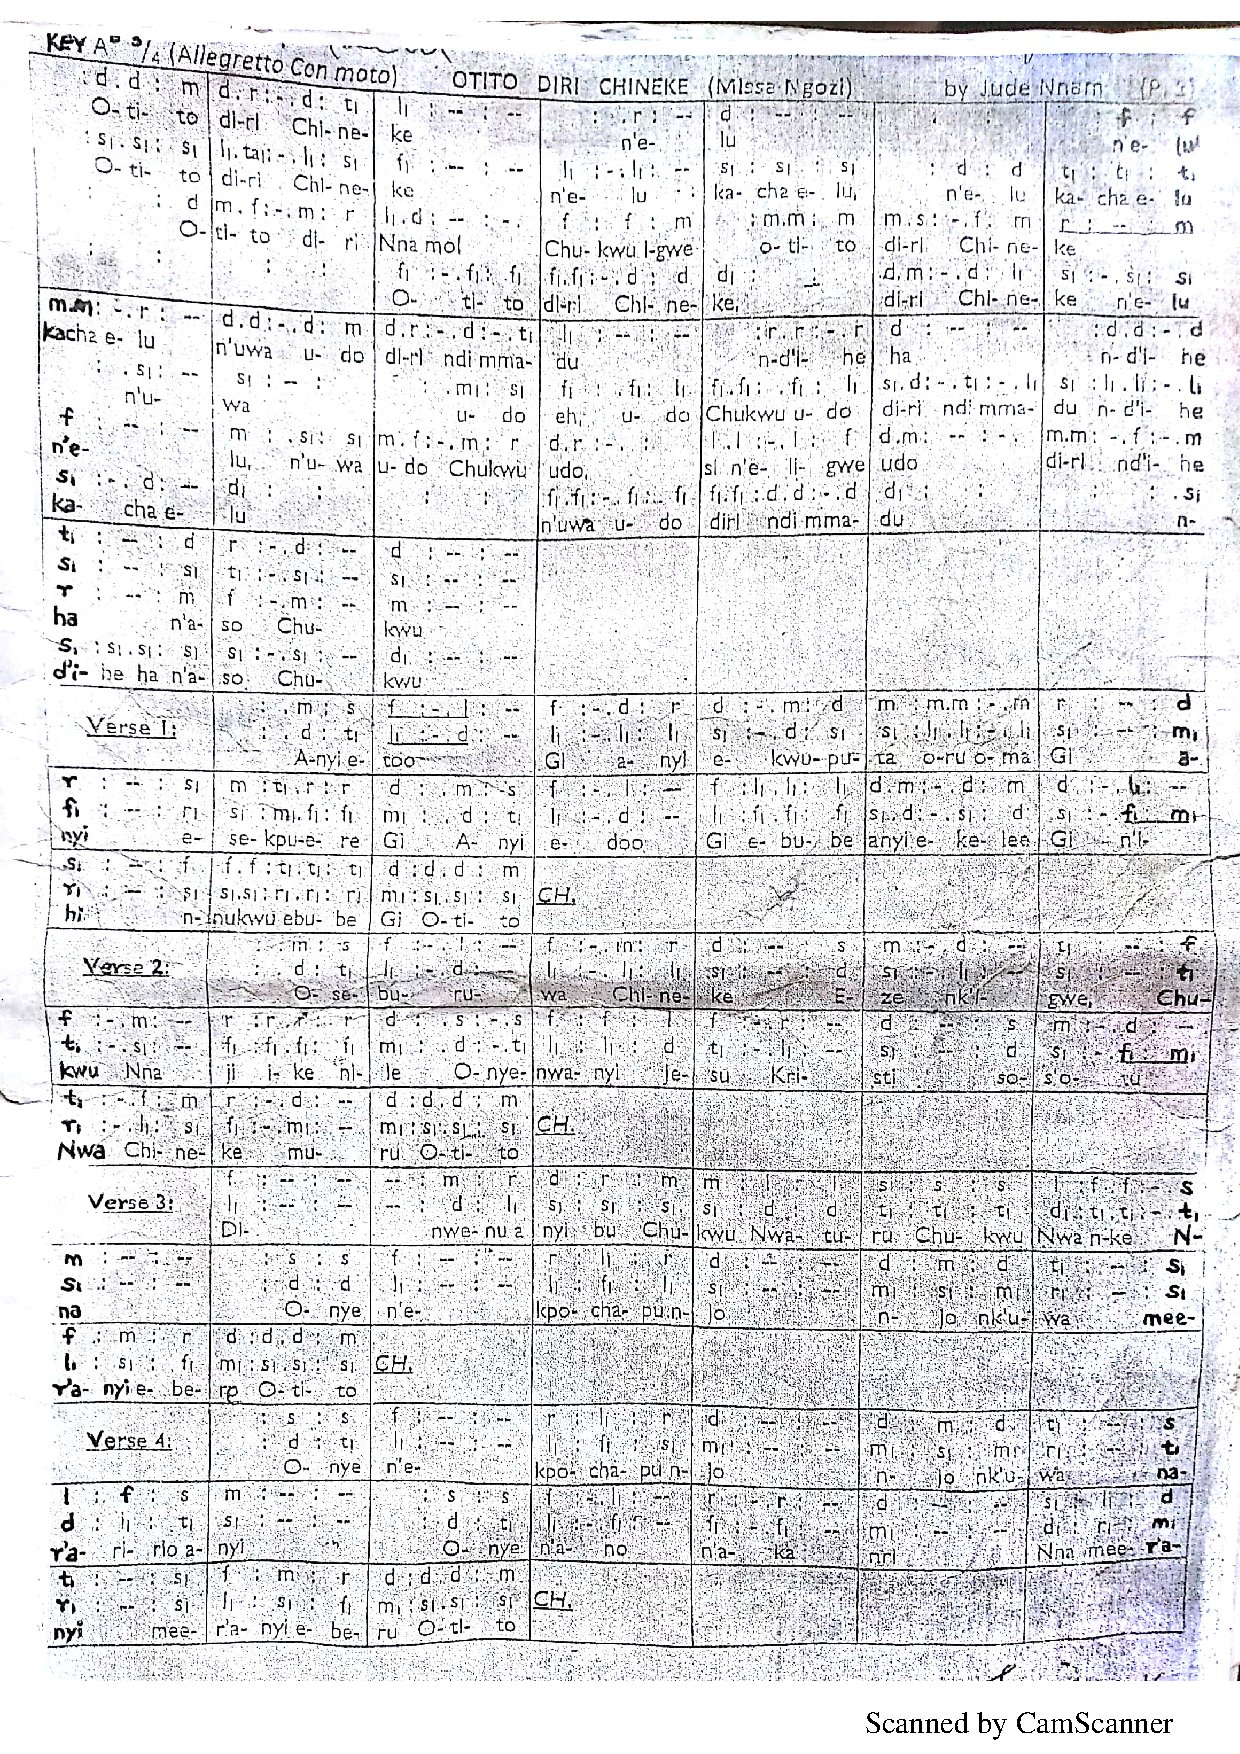 KEY Ab 3/4 (Allegretto Con moto) OTITO DIRI CHINEKE (Missa Ngozi) by Jude Nnam (P. 1)
: d . d : m d . r : - . d : t₁ l₁ : -- : -- : . r : -- d : -- : -- : f : f
O- ti- to di-ri Chi-ne- ke n'e- lu n'e- lu
: s₁ . s₁ : s₁ l₁ . ta₁ : - . l₁ : s₁ f₁ : -- : -- l₁ : - . l₁ : -- s₁ : s₁ : s₁ : d : d t₁ : t₁ : t₁
O- ti- to di-ri Chi-ne- ke n'e- lu ka- cha e- lu, n'e- lu ka- cha e- lu
: : d m . f : - . m : r l₁ . d : -- : - . f : f : m : m . m : m m . s : - . f : m r : -- : m
O- ti- to di- ri Nna mo! Chu- kwu I-gwe o- ti- to di-ri Chi- ne- ke
: : : : f₁ : - . f₁ : f₁ f₁ . f₁ : - . d : d d₁ : : d . m : - . d : l₁ s₁ : - . s₁ : s₁
O- ti- to di-ri Chi- ne- ke, di-ri Chi- ne- ke n'e- lu
m.m : - . r : -- d . d : - . d : m d . r : - . d : - . t₁ l₁ : -- : -- : r . r : - . r d : -- : -- : d . d : - . d
kacha e- lu n'uwa u- do di-ri ndi mma- du n-d'i- he ha n- d'i- he
: . s₁ : -- s₁ : -- : : . m₁ : s₁ f₁ : f₁ : l₁ f₁ . f₁ : . f₁ : l₁ s₁ . d : - . t₁ : - . l₁ s₁ : l₁ . l₁ : - . l₁
n'u- wa u- do eh, u- do Chukwu u- do di-ri ndi mma- du n- d'i- he
f : -- : -- m : . s₁ : s₁ m . f : - . m : r d . r : - . : l . l : - . l : f d . m : -- : - . m . m : - . f : - . m
n'e- lu, n'u- wa u- do Chukwu udo, si n'e- li- gwe udo di-ri nd'i- he
s₁ : - . d : -- d₁ : : : : f₁ . f₁ : - . f₁ : . f₁ f₁ . f₁ : d . d : - . d d₁ : : : : . s₁
ka- cha e- lu n'uwa u- do diri ndi mma- du n-
t₁ : -- : d r : - . d : -- d : -- : --
s₁ : -- : s₁ t₁ : - . s₁ : -- s₁ : -- : --
r : -- : m f : - . m : -- m : -- : --
ha n'a- so Chu- kwu
s₁ : s₁ . s₁ : s₁ s₁ : - . s₁ : -- d₁ : -- : --
d'i- he ha n'a- so Chu- kwu
Verse 1: : . m : s f : - . l : -- f : - . d : r d : - . m : d m : m . m : - . m r : -- : d
: . d : t₁ l₁ : - . d : -- l₁ : - . l₁ : l₁ s₁ : - . d : s₁ s₁ : l₁ . l₁ : - . l₁ s₁ : -- : m₁
A-nyi e- too Gi a- nyi e- kwu- pu- ta o-ru o- ma Gi a-
r : -- : s₁ m : t₁ . r : r d : . m : - s f : - . l : -- f : l₁ . l₁ : l₁ d . m : - . d : m d : - . l₁ : --
f₁ : -- : r₁ s₁ : m₁ . f₁ : f₁ m₁ : . d : t₁ l₁ : - . d : -- l₁ : f₁ . f₁ : f₁ s₁ . d : - . s₁ : d s₁ : - . f₁ : m₁
nyi e- se- kpu-e- re Gi A- nyi e- doo Gi e- bu- be anyi e- ke- lee Gi n'i-
s₁ : -- : f f . f : t₁ . t₁ : t₁ d : d . d : m
r₁ : -- : s₁ s₁ . s₁ : r₁ . r₁ : r₁ m₁ : s₁ . s₁ : s₁ CH.
hi n- nukwu ebu- be Gi O-ti- to
Verse 2: : . m : s f : - . l : -- f : - . m : r d : -- : s m : - . d : -- t₁ : -- : f
: . d : t₁ l₁ : - . d : -- l₁ : - . l₁ : l₁ s₁ : -- : d s₁ : - . l₁ : -- s₁ : -- : t₁
O- se- bu- ru- wa Chi- ne- ke E- ze nk'i- gwe, Chu-
f : - . m : -- r : r . r : r d : . s : - . s f : f : l f : - . r : -- d : -- : s m : - . d : --
t₁ : - . s₁ : -- f₁ : f₁ . f₁ : f₁ m₁ : . d : - . t₁ l₁ : l₁ : d t₁ : - . l₁ : -- s₁ : -- : d s₁ : - . f₁ : m₁
kwu Nna ji i- ke ni- le O- nye- nwa- nyi Je- su Kri- sti so- s'o- tu
t₁ : - . f : m r : - . d : -- d : d . d : m
r₁ : - . l₁ : s₁ f₁ : - . m₁ : -- m₁ : s₁ . s₁ : s₁ CH.
Nwa Chi- ne- ke mu- ru O-ti- to
Verse 3: f : -- : -- -- : m : r d : r : m m : l : l s : s : s l : f . f : - . s
l₁ : -- : -- -- : d : l₁ s₁ : s₁ : s₁ s₁ : d : d t₁ : t₁ : t₁ d : t₁ . t₁ : - . t₁
Di- nwe- nu a nyi bu Chu- kwu Nwa- tu- ru Chu- kwu Nwa n-ke N-
m : -- : -- : s : s f : -- : -- r : l₁ : r d : -- : -- d : m : d t₁ : -- : s₁
s₁ : -- : -- : d : d l₁ : -- : -- l₁ : f₁ : l₁ s₁ : -- : -- m₁ : s₁ : m₁ r₁ : -- : s₁
na O- nye n'e- kpo- cha- pu n- jo n- jo nk'u- wa mee-
f : m : r d : d . d : m
l₁ : s₁ : f₁ m₁ : s₁ . s₁ : s₁ CH.
r'a- nyi e- be- re O- ti- to
Verse 4: : s : s f : -- : -- r : l₁ : r d : -- : -- d : m : d t₁ : -- : s
: d : t₁ l₁ : -- : -- l₁ : f₁ : s₁ m₁ : -- : -- m₁ : s₁ : m₁ r₁ : -- : t₁
O- nye n'e- kpo- cha- pu n- jo n- jo nk'u- wa na-
l : f : s m : -- : -- : s : s f : - . l : -- r : - . r : -- d : -- : -- s₁ : l₁ : d
d : l₁ : t₁ s₁ : -- : -- : d : t₁ l₁ : - . f₁ : -- f₁ : - . f₁ : -- m₁ : -- : -- d₁ : r₁ : m₁
r'a- ri- rio a- nyi O- nye n'a- no n'a- ka nri Nna mee- r'a-
t₁ : -- : s₁ f : m : r d : d . d : m
r₁ : -- : s₁ l₁ : s₁ : f₁ m₁ : s₁ . s₁ : s₁ CH.
nyi mee- r'a- nyi e- be- ru O-ti- to
Scanned by CamScanner